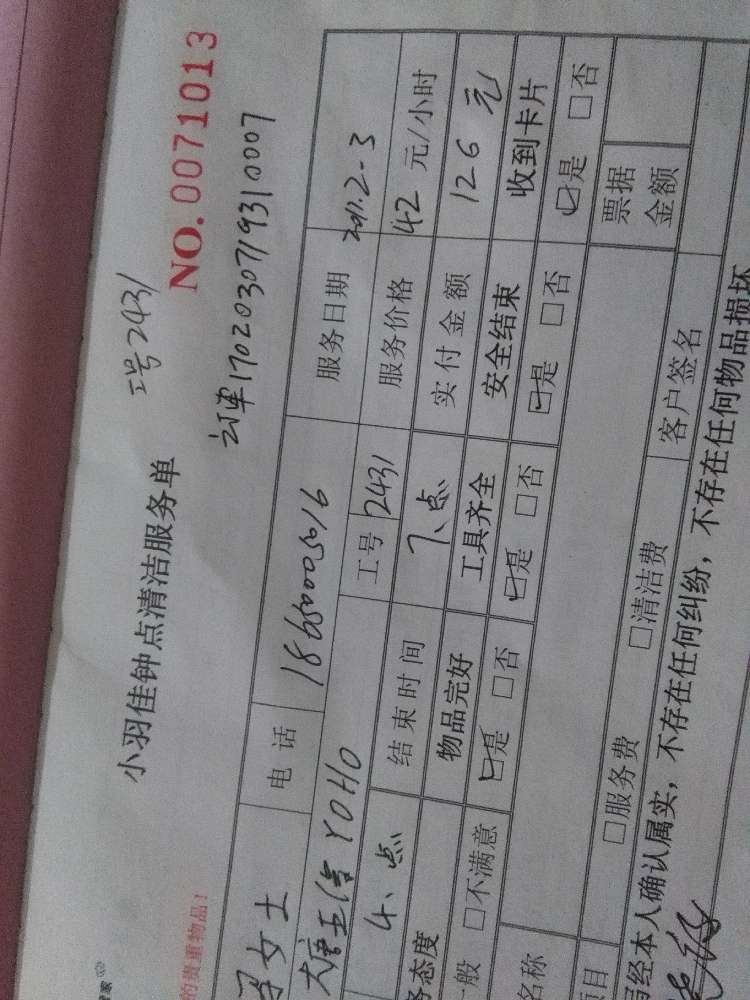 小羽佳钟点清洁服务单
工号2431
NO.0071013
订单1702030719310007
的贵重物品!
女士 电话 18660005016 服务日期 2017.2-3
大唐五 YOHO 工号 2431 服务价格 42 元/小时
4、点 结束时间 7、点 实付金额 126元
务态度 物品完好 工具齐全 安全结束 收到卡片
一般 □不满意 ☑是 □否 ☑是 □否 ☑是 □否 ☑是 □否
名称 票据金额
项目 □服务费 □清洁费 客户签名
经本人确认属实,不存在任何纠纷,不存在任何物品损坏